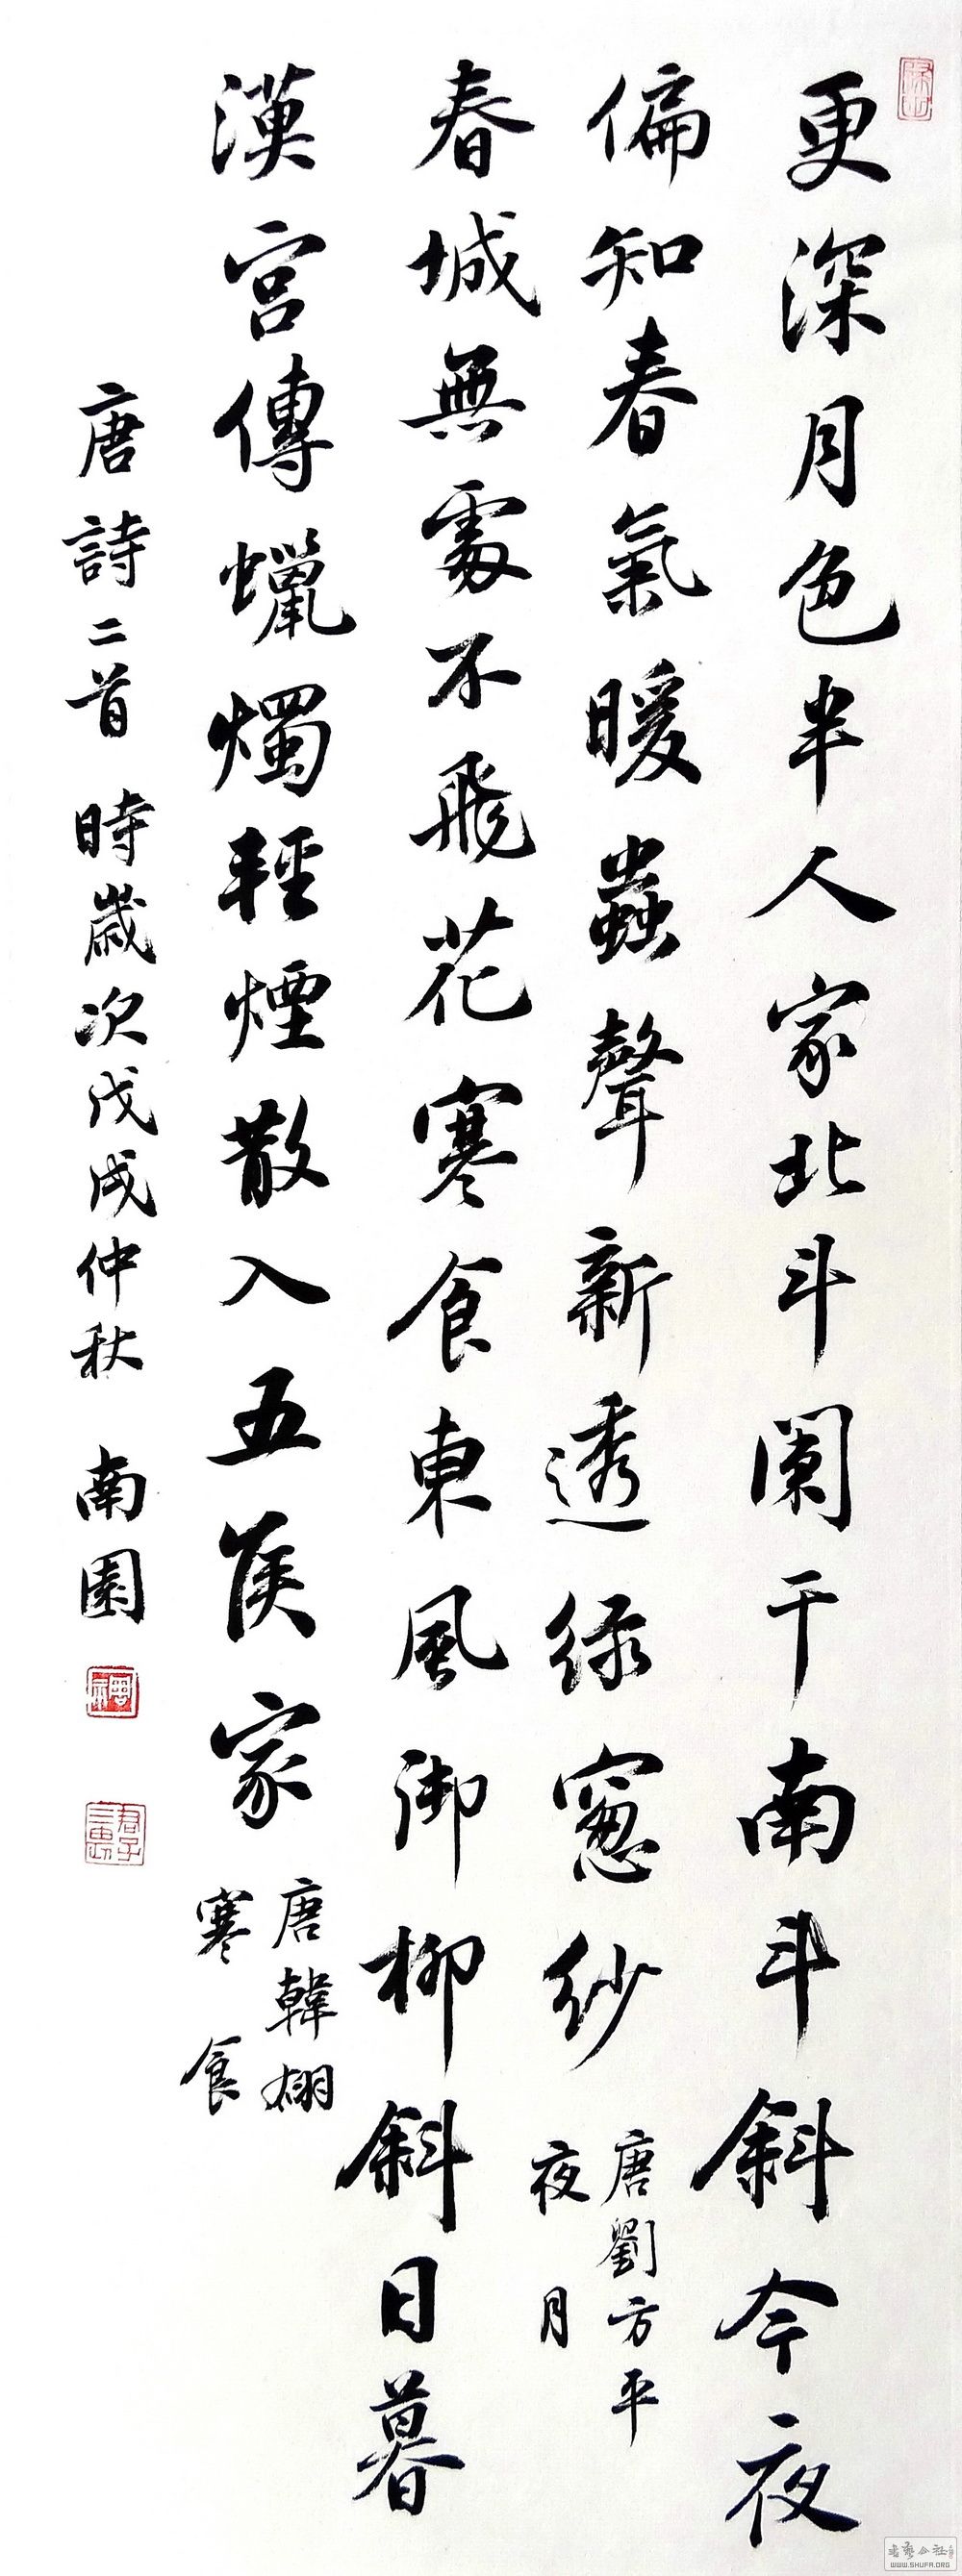 更深月色半人家北斗闌干南斗斜今夜
偏知春氣暖蟲聲新透綠窗紗
唐劉方平
夜月
春城無處不飛花寒食東風御柳斜日暮
漢宮傳蠟燭輕煙散入五侯家
唐韓翃
寒食
唐詩二首 時歲次戊戌仲秋 南園
WWW.SHUFA.ORG